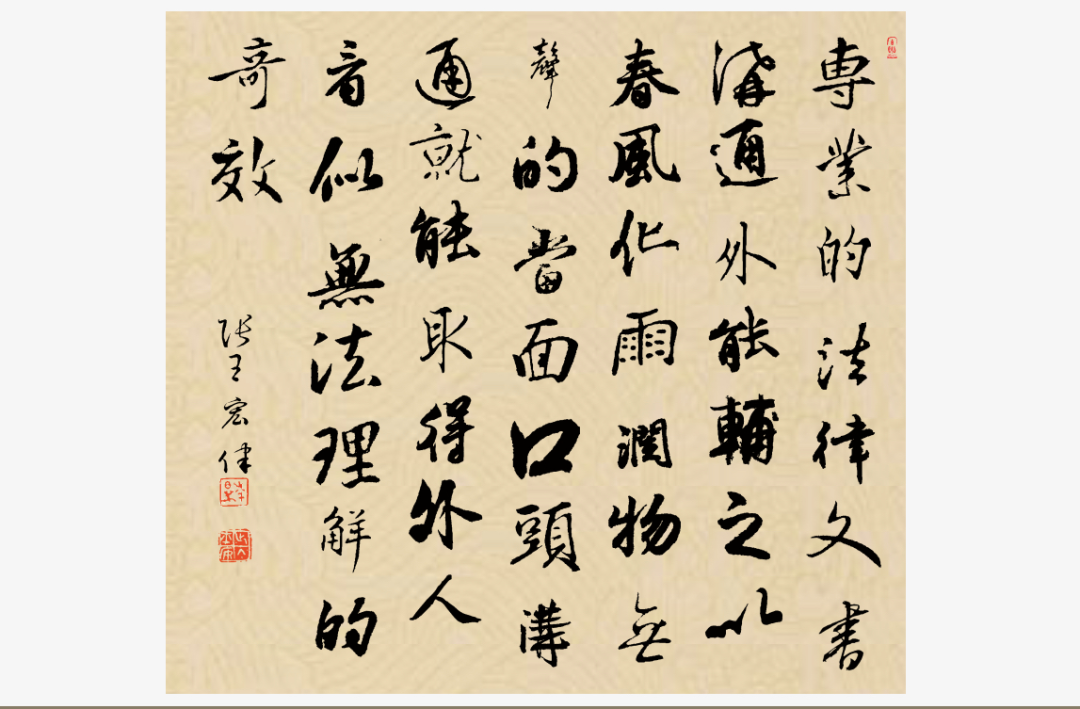 専業的法律文書
溝通外能輔之以
春風化雨潤物無
聲的當面口頭溝
通就能取得外人
看似無法理解的
奇效
张王宏律